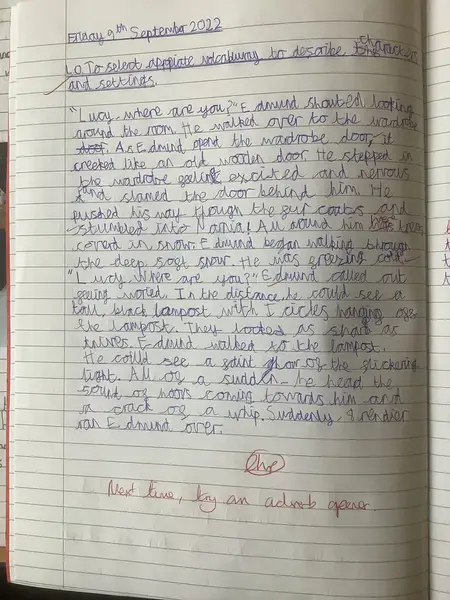 Friday 9th September 2022
L.O. To select appriate volcabuary to describe characters
and settings.
"Lucy, where are you?" Edmund shouted looking
around the room. He walked over to the wardrobe
door. As Edmund, opend the wardrobe door, it
creeked like an old wooden door. He stepped in
the wardrobe feeling excited and nervous
and slamed the door behind him. He
pushed his way though the fur coats and
stumbled into Narnia! All around him trees
coverd in snow. Edmund began walking through
the deep soft snow. He was freezing cold.
"Lucy, Where are you?" Edmund called out
feeling woried. In the distance, he could see a
tall, black lampost with I circles hanging ofe
the lampost. They looked as sharp as
knives. Edmund walked to the lampost.
He could see a faint glow of the flickering
light. All of a sudden he head the
sound of hoovs coming towards him and
a crack of a whip. Suddenly, 8 rendier
ran Edmund over.
Next time, try an adverb opener